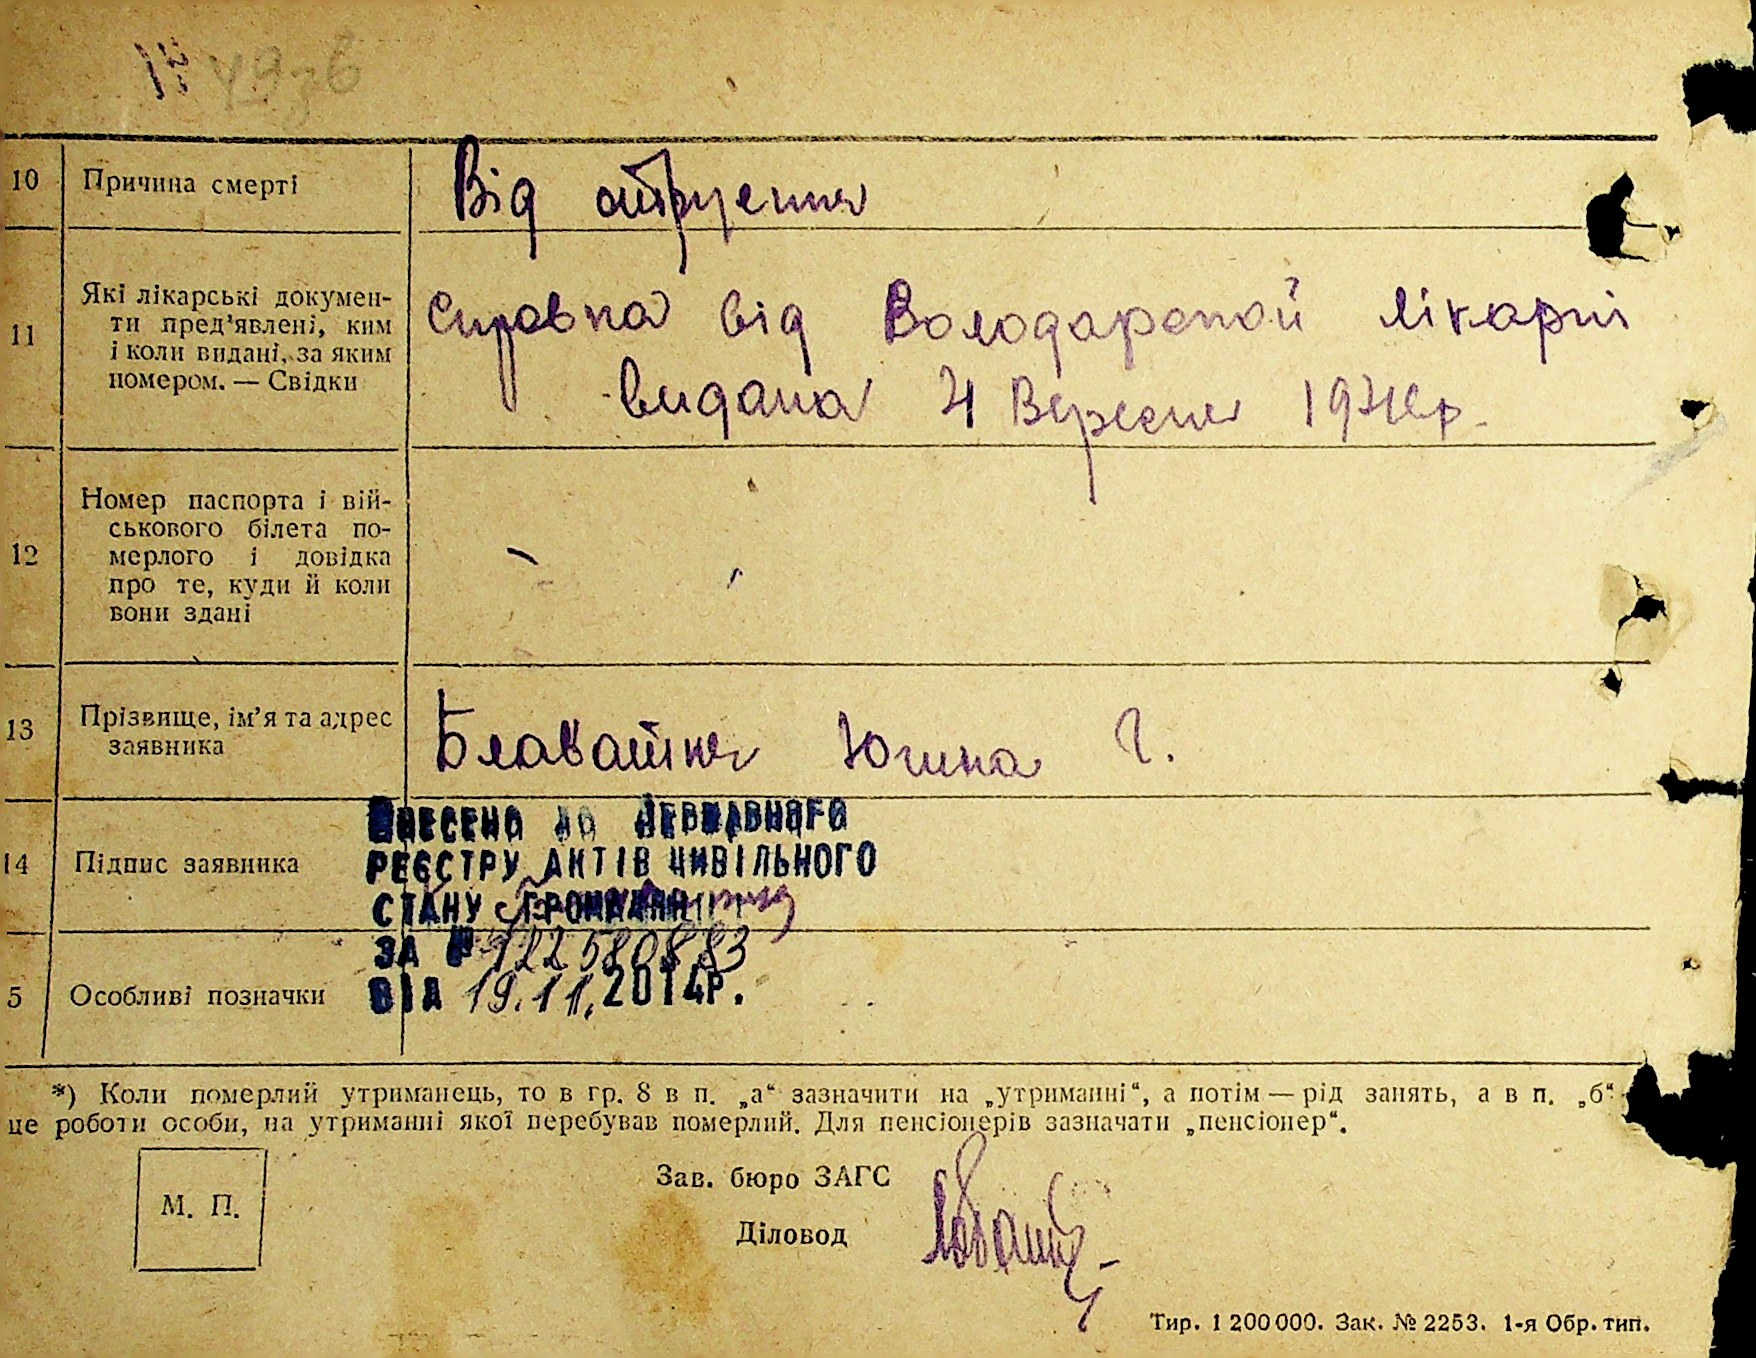 10 Причина смерті Від отруєння
11 Які лікарські докумен-
ти пред'явлені, ким
і коли видані, за яким
номером. — Свідки
Справка від Володарской лікарні
видана 4 Вересня
12 Номер паспорта і вій-
ськового білета по-
мерлого і довідка
про те, куди й коли
вони здані
13 Прізвище, ім'я та адрес
заявника
Югина Г.
14 Підпис заявника
5 Особливі позначки
ВНЕСЕНО ДО ДЕРЖАВНОГО
РЕЄСТРУ АКТІВ ЦИВІЛЬНОГО
СТАНУ ГРОМАДЯН
ЗА №
ВІД 19.11.2014Р.
*) Коли померлий утриманець, то в гр. 8 в п. „а“ зазначити на „утриманні“, а потім — рід занять, а в п. „б“
це роботи особи, на утриманні якої перебував померлий. Для пенсіонерів зазначати „пенсіонер“.
М. П.
Зав. бюро ЗАГС
Діловод
Тир. 1 200 000. Зак. № 2253. 1-я Обр. тип.